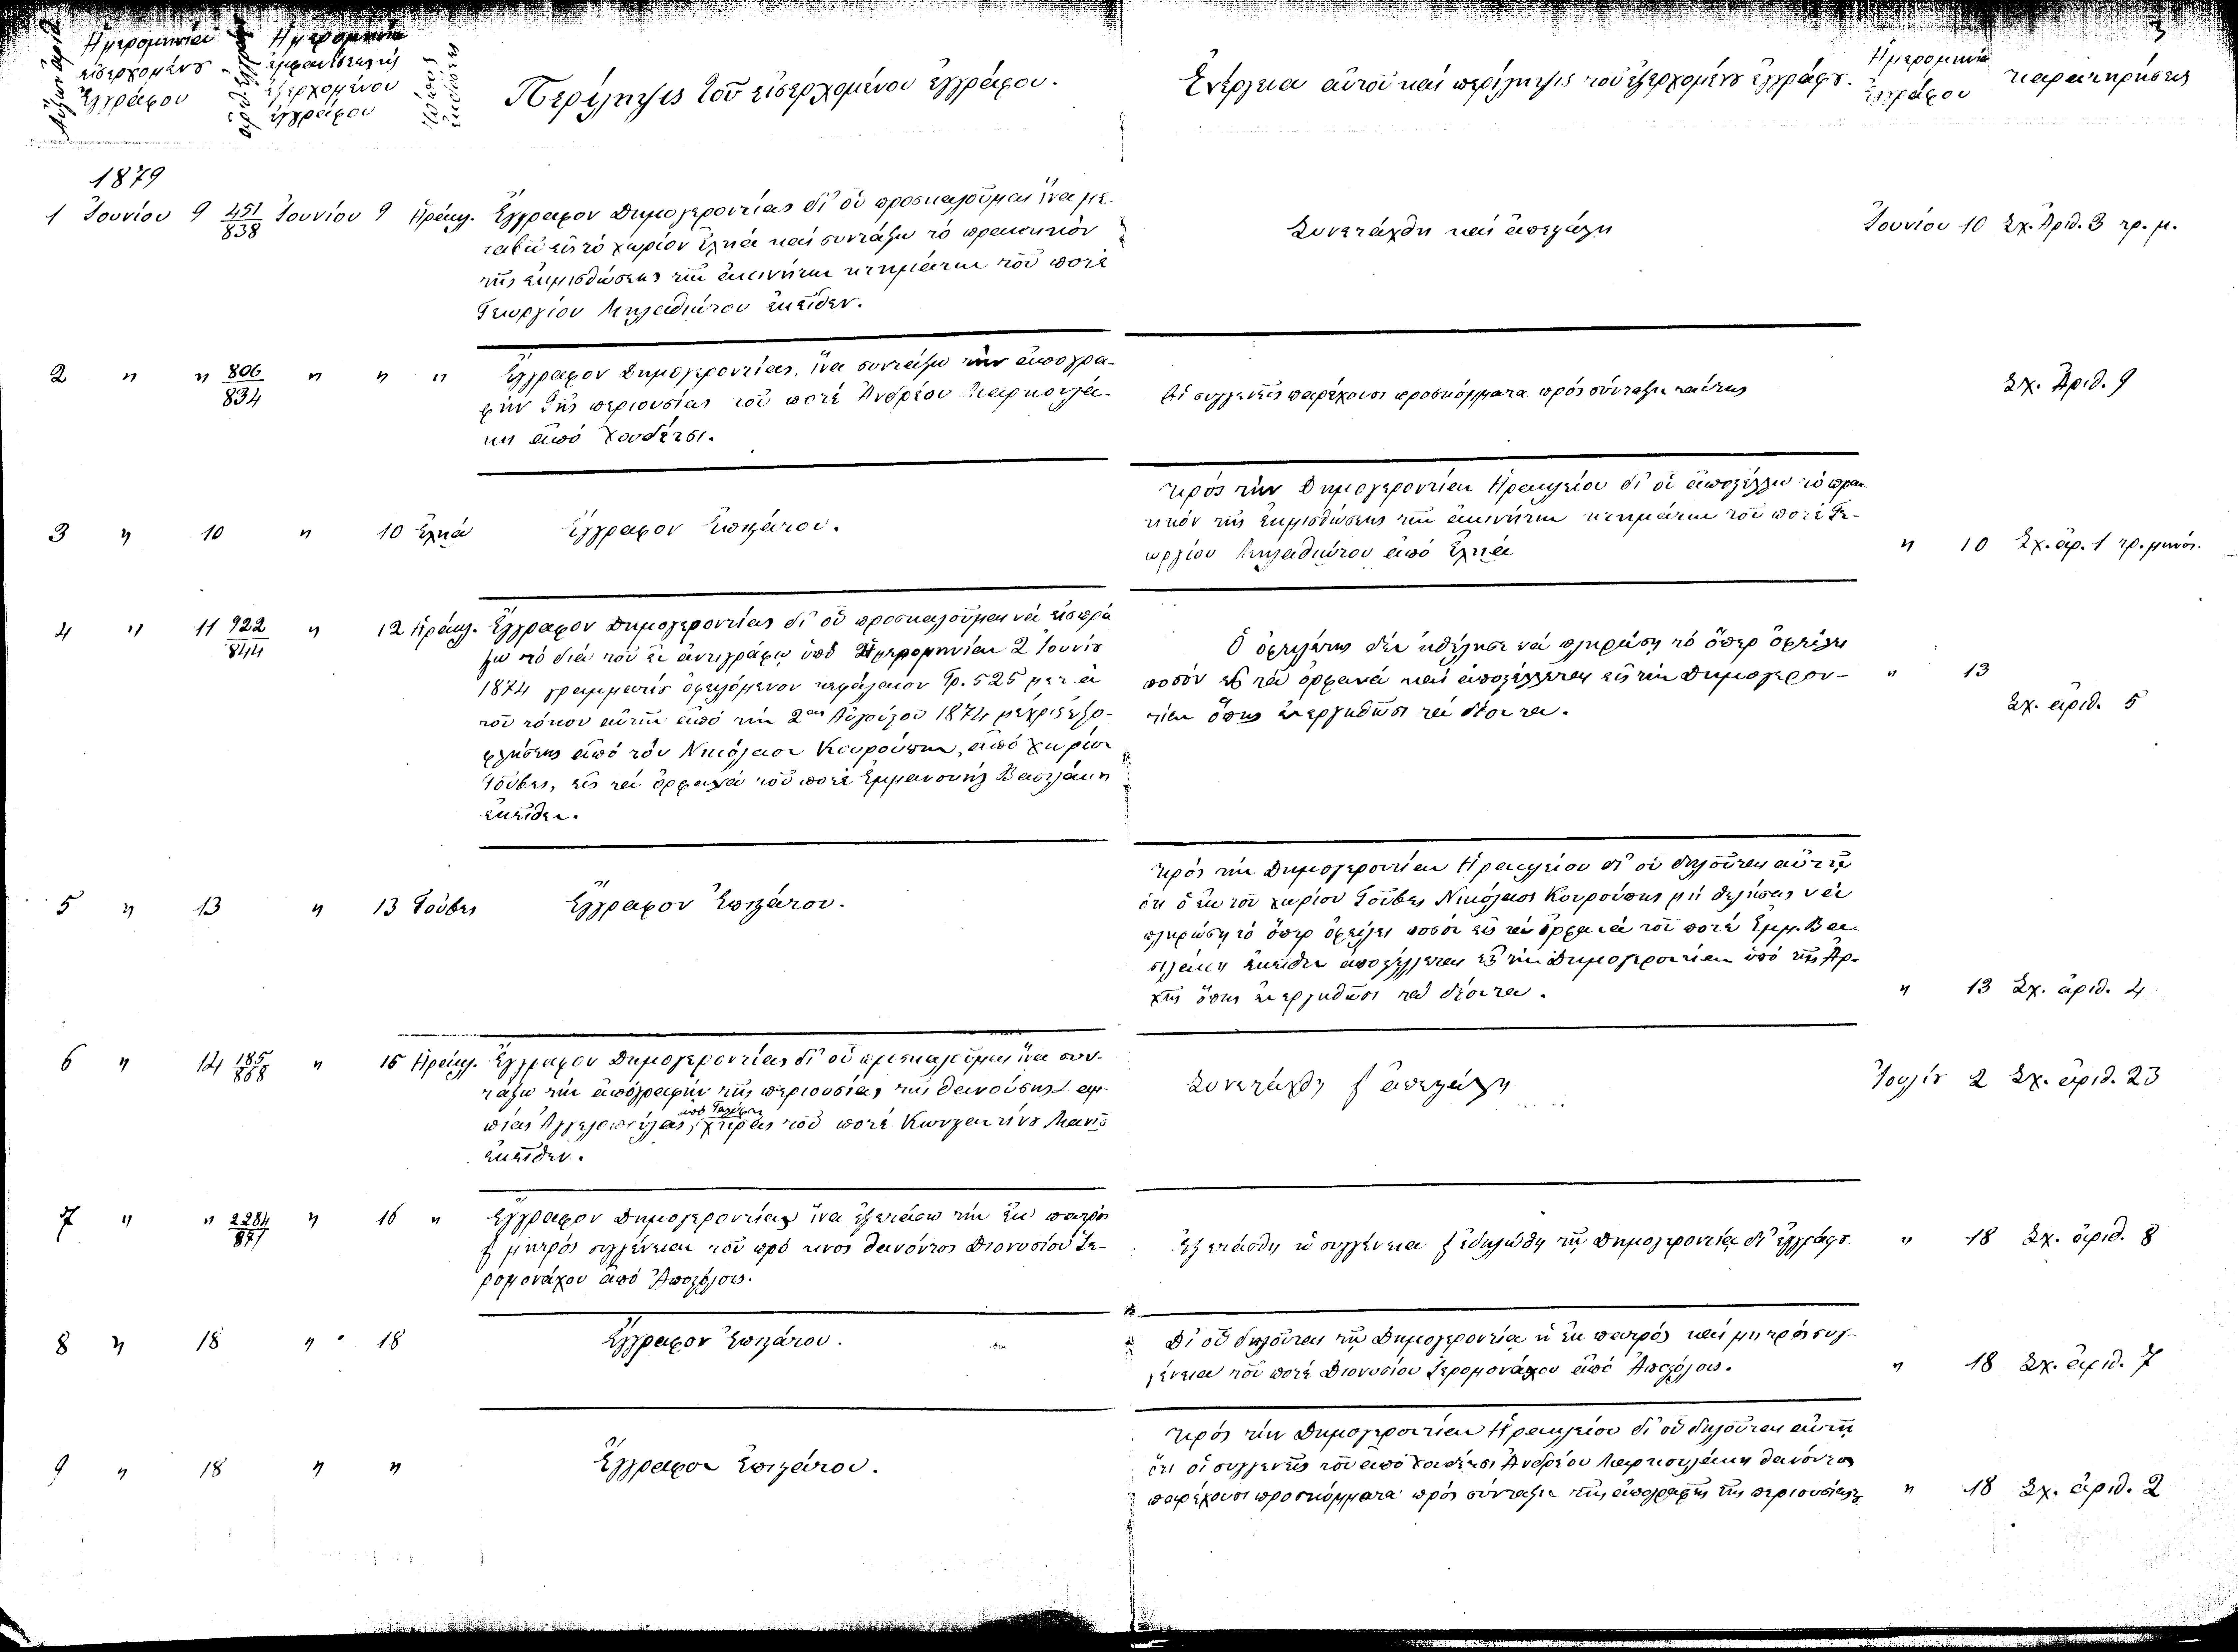 3
Αὔξων ἀριθ.
Ἡμερομηνία
εἰσερχομένου
ἐγγράφου
ἀριθ. ἐγγράφου
Ἡμερομηνία
ἐμφανίσεως τῆς
ἐξερχομένου
ἐγγράφου
τόπος
ἐκδόσεως
Περίληψις τοῦ εἰσερχομένου ἐγγράφου.
Ἐνέργεια αὐτοῦ καί περίληψις τοῦ ἐξερχομένου ἐγγράφου.
Ἡμερομηνία
ἐγγράφου
παρατηρήσεις
1879
1 Ἰουνίου 9 451/838 Ἰουνίου 9 Ἡράκλ. Ἔγγραφον Δημογεροντίας δι' οὗ προσκαλοῦμαι ἵνα με-
ταβῶ εἰς τό χωρίον Ἐληά καί συντάξω τό πρακτικόν
τῆς ἐκμισθώσεως τῶν ἀκινήτων κτημάτων τοῦ ποτέ
Γεωργίου Μηλαθιώτου ἐκεῖθεν.
Συνετάχθη καί ἀπεστάλη
Ἰουνίου 10 Σχ. Ἀριθ. 3 τρ. μ.
2 " " 806/834 " " " Ἔγγραφον Δημογεροντίας, ἵνα συντάξω τήν ἀπογρα-
φήν τῆς περιουσίας τοῦ ποτέ Ἀνδρέου Μαρκουλά-
κη ἀπό Χουδέτσι.
Οἱ συγγενεῖς παρέχουσι προσκόμματα πρός σύνταξιν ταύτης
Σχ. Ἀριθ. 9
3 " 10 " 10 Ἐληά Ἔγγραφον Ἐπιστάτου.
Πρός τήν Δημογεροντίαν Ἡρακλείου δι' οὗ ἀποστέλλω τό πρακ
τικόν τῆς ἐκμισθώσεως τῶν ἀκινήτων κτημάτων τοῦ ποτέ Γε-
ωργίου Μηλαθιώτου ἀπό Ἐληά
" 10 Σχ. ἀρ. 1 τρ. μηνός.
4 " 11 922/844 " 12 Ἡράκλ. Ἔγγραφον Δημογεροντίας δι' οὗ προσκαλοῦμαι νά εἰσπρά
ξω τό διά τοῦ ἐν ἀντιγράφῳ ὑπό ἡμερομηνίαν 2 Ἰουνίου
1874 γραμματίου ὀφειλόμενον κεφάλαιον Γρ. 525 μετά
τοῦ τόκου αὐτῶν ἀπό τήν 2αν Αὐγούστου 1874 μέχρις ἐξο-
φλήσεως ἀπό τόν Νικόλαον Κουρούπην, ἀπό χωρίον
Γοῦβες, εἰς τά ὀρφανά τοῦ ποτέ Ἐμμανουήλ Βασιλάκη
ἐκεῖθεν.
Ὁ ὀφειλέτης δέν ἠθέλησε νά πληρώσῃ τό ὅπερ ὀφείλει
ποσόν εἰς τά ὀρφανά καί ἀποστέλλεται εἰς τήν Δημογερον-
τίαν ὅπως ἐνεργηθῶσι τά δέοντα.
" 13
Σχ. ἀριθ. 5
5 " 13 " 13 Γοῦβες Ἔγγραφον Ἐπιστάτου.
Πρός τήν Δημογεροντίαν Ἡρακλείου δι' οὗ δηλοῦται αὐτῇ
ὅτι ὁ ἐκ τοῦ χωρίου Γοῦβες Νικόλαος Κουρούπης μή θελήσας νά
πληρώσῃ τό ὅπερ ὀφείλει ποσόν εἰς τά ὀρφανά τοῦ ποτέ Ἐμμ. Βα-
σιλάκη ἐκεῖθεν ἀποστέλλεται εἰς τήν Δημογεροντίαν ὑπό τῆς Ἀρ-
χῆς ὅπως ἐνεργηθῶσι τά δέοντα.
" 13 Σχ. ἀριθ. 4
6 " 14 185/868 " 15 Ἡράκλ. Ἔγγραφον Δημογεροντίας δι' οὗ προσκαλοῦμαι ἵνα συν-
τάξω τήν ἀπόγραφήν τῆς περιουσίας τῆς θανούσης
χήρας τοῦ ποτέ Κωνσταντίνου
ἐκεῖθεν.
Συνετάχθη ϗ ἀπεστάλη
Ἰουλίου 2 Σχ. ἀριθ. 23
7 " " 2284/871 " 16 " Ἔγγραφον Δημογεροντίας ἵνα ἐξετάσω τήν ἐκ πατρός
ϗ μητρός συγγένειαν τοῦ πρό τινος θανόντος Διονυσίου Ἱε-
ρομονάχου ἀπό Ἀποστόλους.
Ἐξετάσθη ἡ συγγένεια ϗ ἐδηλώθη τῇ Δημογεροντίᾳ δι' ἐγγράφου.
" 18 Σχ. ἀριθ. 8
8 " 18 " 18 Ἔγγραφον Ἐπιστάτου.
Δι' οὗ δηλοῦται τῇ Δημογεροντίᾳ ἡ ἐκ πατρός καί μητρός συγ-
γένεια τοῦ ποτέ Διονυσίου Ἱερομονάχου ἀπό Ἀποστόλους.
" 18 Σχ. ἀριθ. 7
9 " 18 " " Ἔγγραφον Ἐπιστάτου.
Πρός τήν Δημογεροντίαν Ἡρακλείου δι' οὗ δηλοῦται αὐτῇ
ὅτι οἱ συγγενεῖς τοῦ ἀπό Χουδέτσι Ἀνδρέου Μαρκουλάκη θανόντος
παρέχουσι προσκόμματα πρός σύνταξιν τῆς ἀπογραφῆς τῆς περιουσίας
" 18 Σχ. ἀριθ. 2